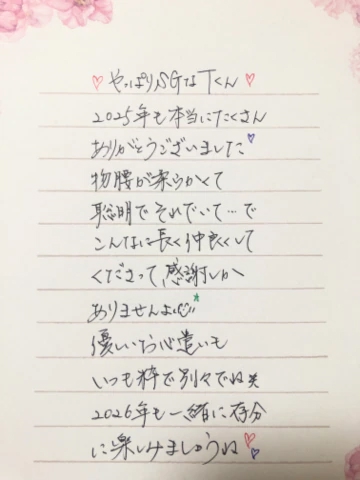 ♡やっぱりSGなTくん♡
2025年も本当にたくさん
ありがとうございました♡
物腰が柔らかくて
聡明でそれでいて…で
こんなに長く仲良くして
くださって、感謝しか
ありませんよ
優しいお心遣いも
いつも粋で別々でね
2026年も一緒に存分
に楽しみましょうね♡